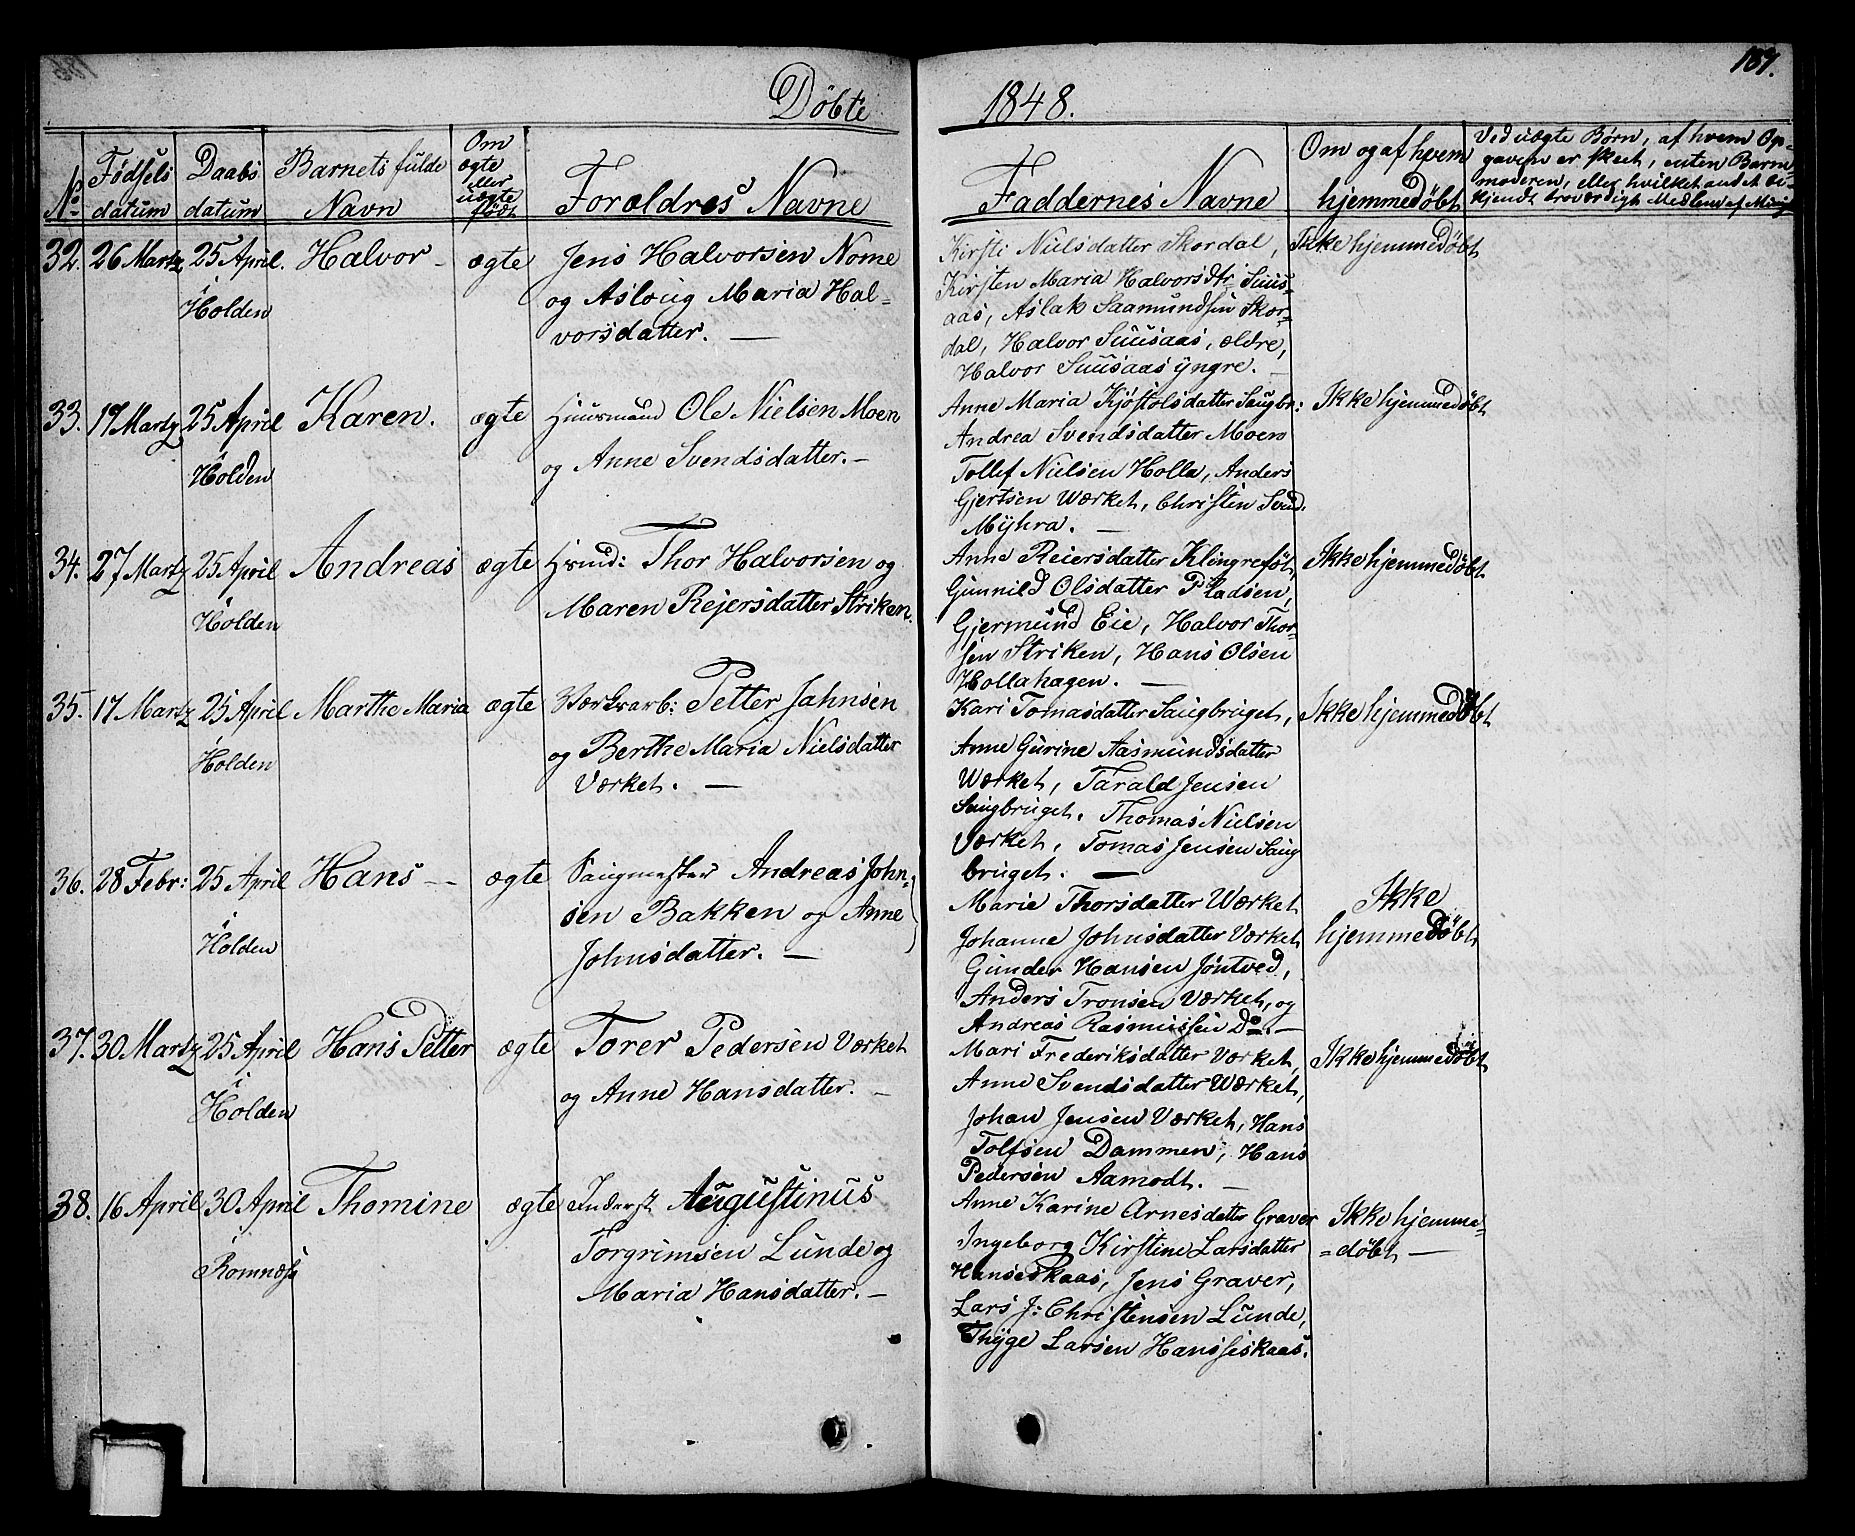 187.
Døbte 1848.
No
Fødsels datum
Daabs datum
Barnets fulde Navn
Om ægte eller uægte født
Forældres Navne
Faddernes Navne
Om og af hvem hjemmedøbt
Ved uægte Børn, af hvem Op-
gaven er skeet, enten Barne-
moderen, eller hvilket andet be-
kjendt troværdigt Medlem af Menig
32. 26 Martz 25 April i Holden Halvor – ægte
Jens Halvorsen Nome
og Aslaug Maria Hal-
vorsdatter. —
Kirsti Nielsdatter Skordal,
Kirsten Maria Halvorsdtr Suus-
aas, Aslak Saamundsen Skor-
dal, Halvor Suusaas, ældre,
Halvor Suusaas yngre. –
Ikke hjemmedøbt
33. 17 Martz 25 April i Holden Karen. ægte
Huusmand Ole Nielsen Moen
og Anne Svendsdatter. –
Anne Maria Kjøstolsdatter Saugbr:
Andrea Svendsdatter Moen
Tollef Nielsen Holla, Anders
Gjertsen Værket, Christen Svend.
Myhra. —
Ikke hjemmedøbt
34. 27 Martz 25 April i Holden Andreas ægte
Hmnd: Thor Halvorsen og
Maren Rejersdatter Striken.
Anne Reiersdatter Klingrefôt,
Gunnild Olsdatter Pladsen,
Gjermund Eie, Halvor Thor-
sen Striken, Hans Olsen
Hollahagen. —
Ikke hjemmedøbt
35. 17 Martz 25 April i Holden Marthe Maria ægte
Værksarb: Petter Jahnsen
og Berthe Maria Nielsdatter
Værket. —
Kari Tomasdatter Saugbruget,
Anne Gurine Aasmundsdatter
Værket, Tarald Jensen
Saugbruget, Thomas Nielsen
Værket, Tomas Jensen Saug
bruget. —
Ikke hjemmedøbt
36. 28 Febr: 25 April i Holden Hans – – ægte
Saugmester Andreas John-
sen Bakken og Anne
Johnsdatter. —
Marie Thorsdatter Værket
Johanne Johnsdatter Værket
Gunder Hansen Jöntved,
Anders Tronsen Værket, og
Andreas Rasmussen Do. —
Ikke
hjemmedøbt
37. 30 Martz 25 April i Holden Hans Petter ægte
Torer Pedersen Værket
og Anne Hansdatter. –
Mari Frederiksdatter Værket,
Anne Svendsdatter Værket,
Johan Jensen Værket, Hans
Tolfsen Dammen, Hans
Pedersen Aamodt. –
Ikke hjemmedøbt
38. 16 April 30 April i Romnæss Thomine ægte
Inderst Augustinus
Torgrimsen Lunde og
Maria Hansdatter. –
Anne Karine Arnesdatter Graver
Ingeborg Kirstine Larsdatter
Hanseskaas, Jens Graver,
Lars J: Christensen Lunde,
Thyge Larsen Hansseskaas.
Ikke hjemme-
=døbt —